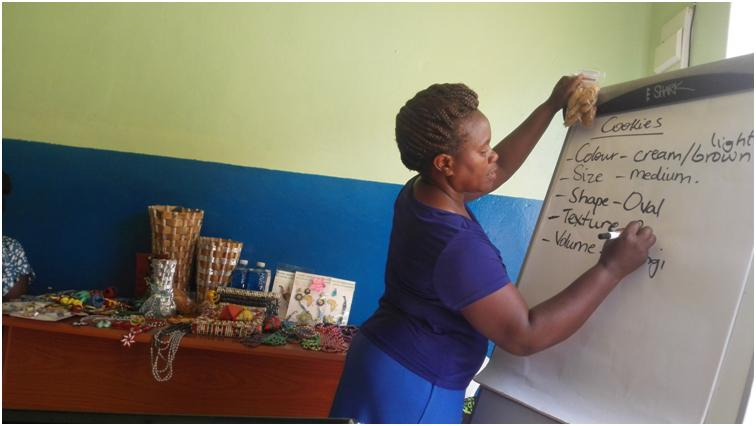 SHARK
Cookies
- Colour - cream/light brown
- Size - medium.
- Shape - Oval
- Texture
- Volume -